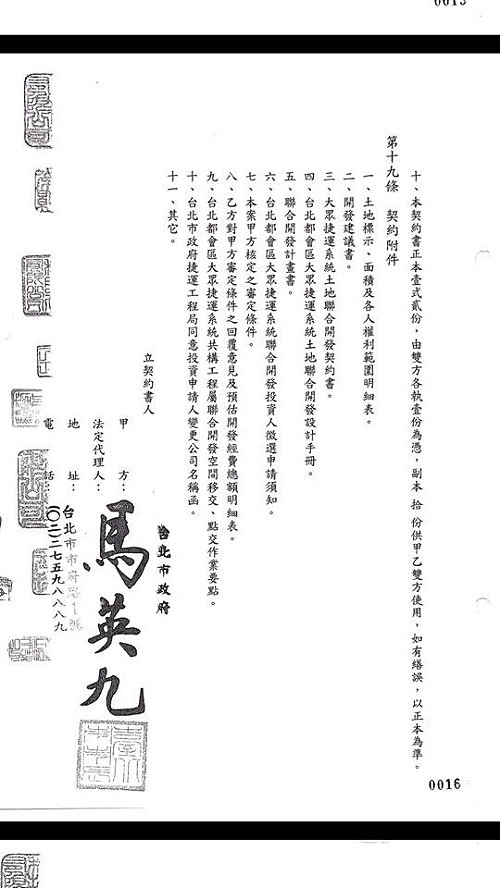 0015
十、本契約書正本壹式貳份，由雙方各執壹份為憑，副本 拾 份供甲乙雙方使用，如有繕誤，以正本為準。
第十九條 契約附件
一、土地標示、面積及各人權利範圍明細表。
二、開發建議書。
三、大眾捷運系統土地聯合開發契約書。
四、台北都會區大眾捷運系統土地聯合開發設計手冊。
五、聯合開發計畫書。
六、台北都會區大眾捷運系統聯合開發投資人徵選申請須知。
七、本案甲方核定之審定條件。
八、乙方對甲方審定條件之回覆意見及預估開發經費總額明細表。
九、台北都會區大眾捷運系統共構工程屬聯合開發空間移交、點交作業要點。
十、台北市政府捷運工程局同意投資申請人變更公司名稱函。
十一、其它。
立契約書人
甲 方：台北市政府
法定代理人：馬英九
地 址：台北市市府路1號
電 話：(〇二)二七五九八八八九
0016